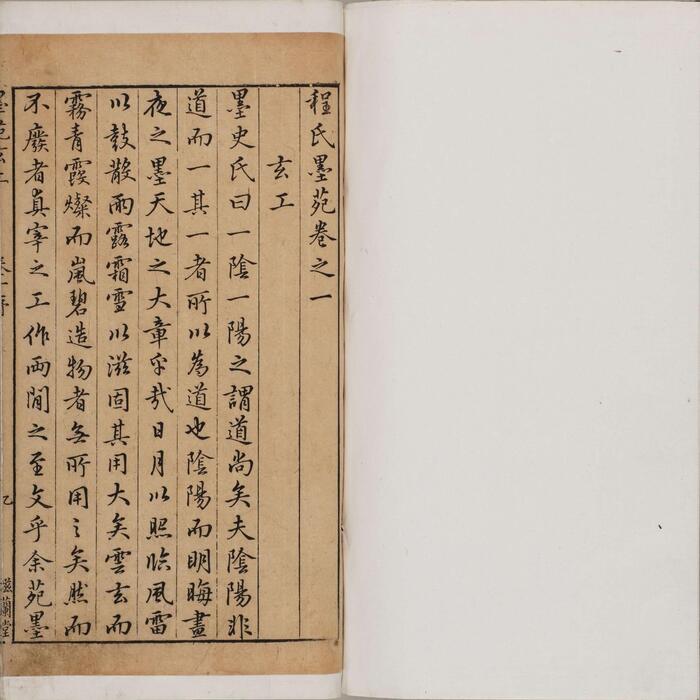 程氏墨苑卷之一
玄工
墨史氏曰一陰一陽之謂道尚矣夫陰陽非
道而一其一者所以為道也陰陽而明晦晝
夜之墨天地之大章乎哉日月以照臨風雷
以鼓散雨露霜雪以滋固其用大矣雲玄而
霧青霞燦而嵐碧造物者無所用之矣然而
不廢者真宰之工作两間之至文乎余苑墨
滋蘭堂